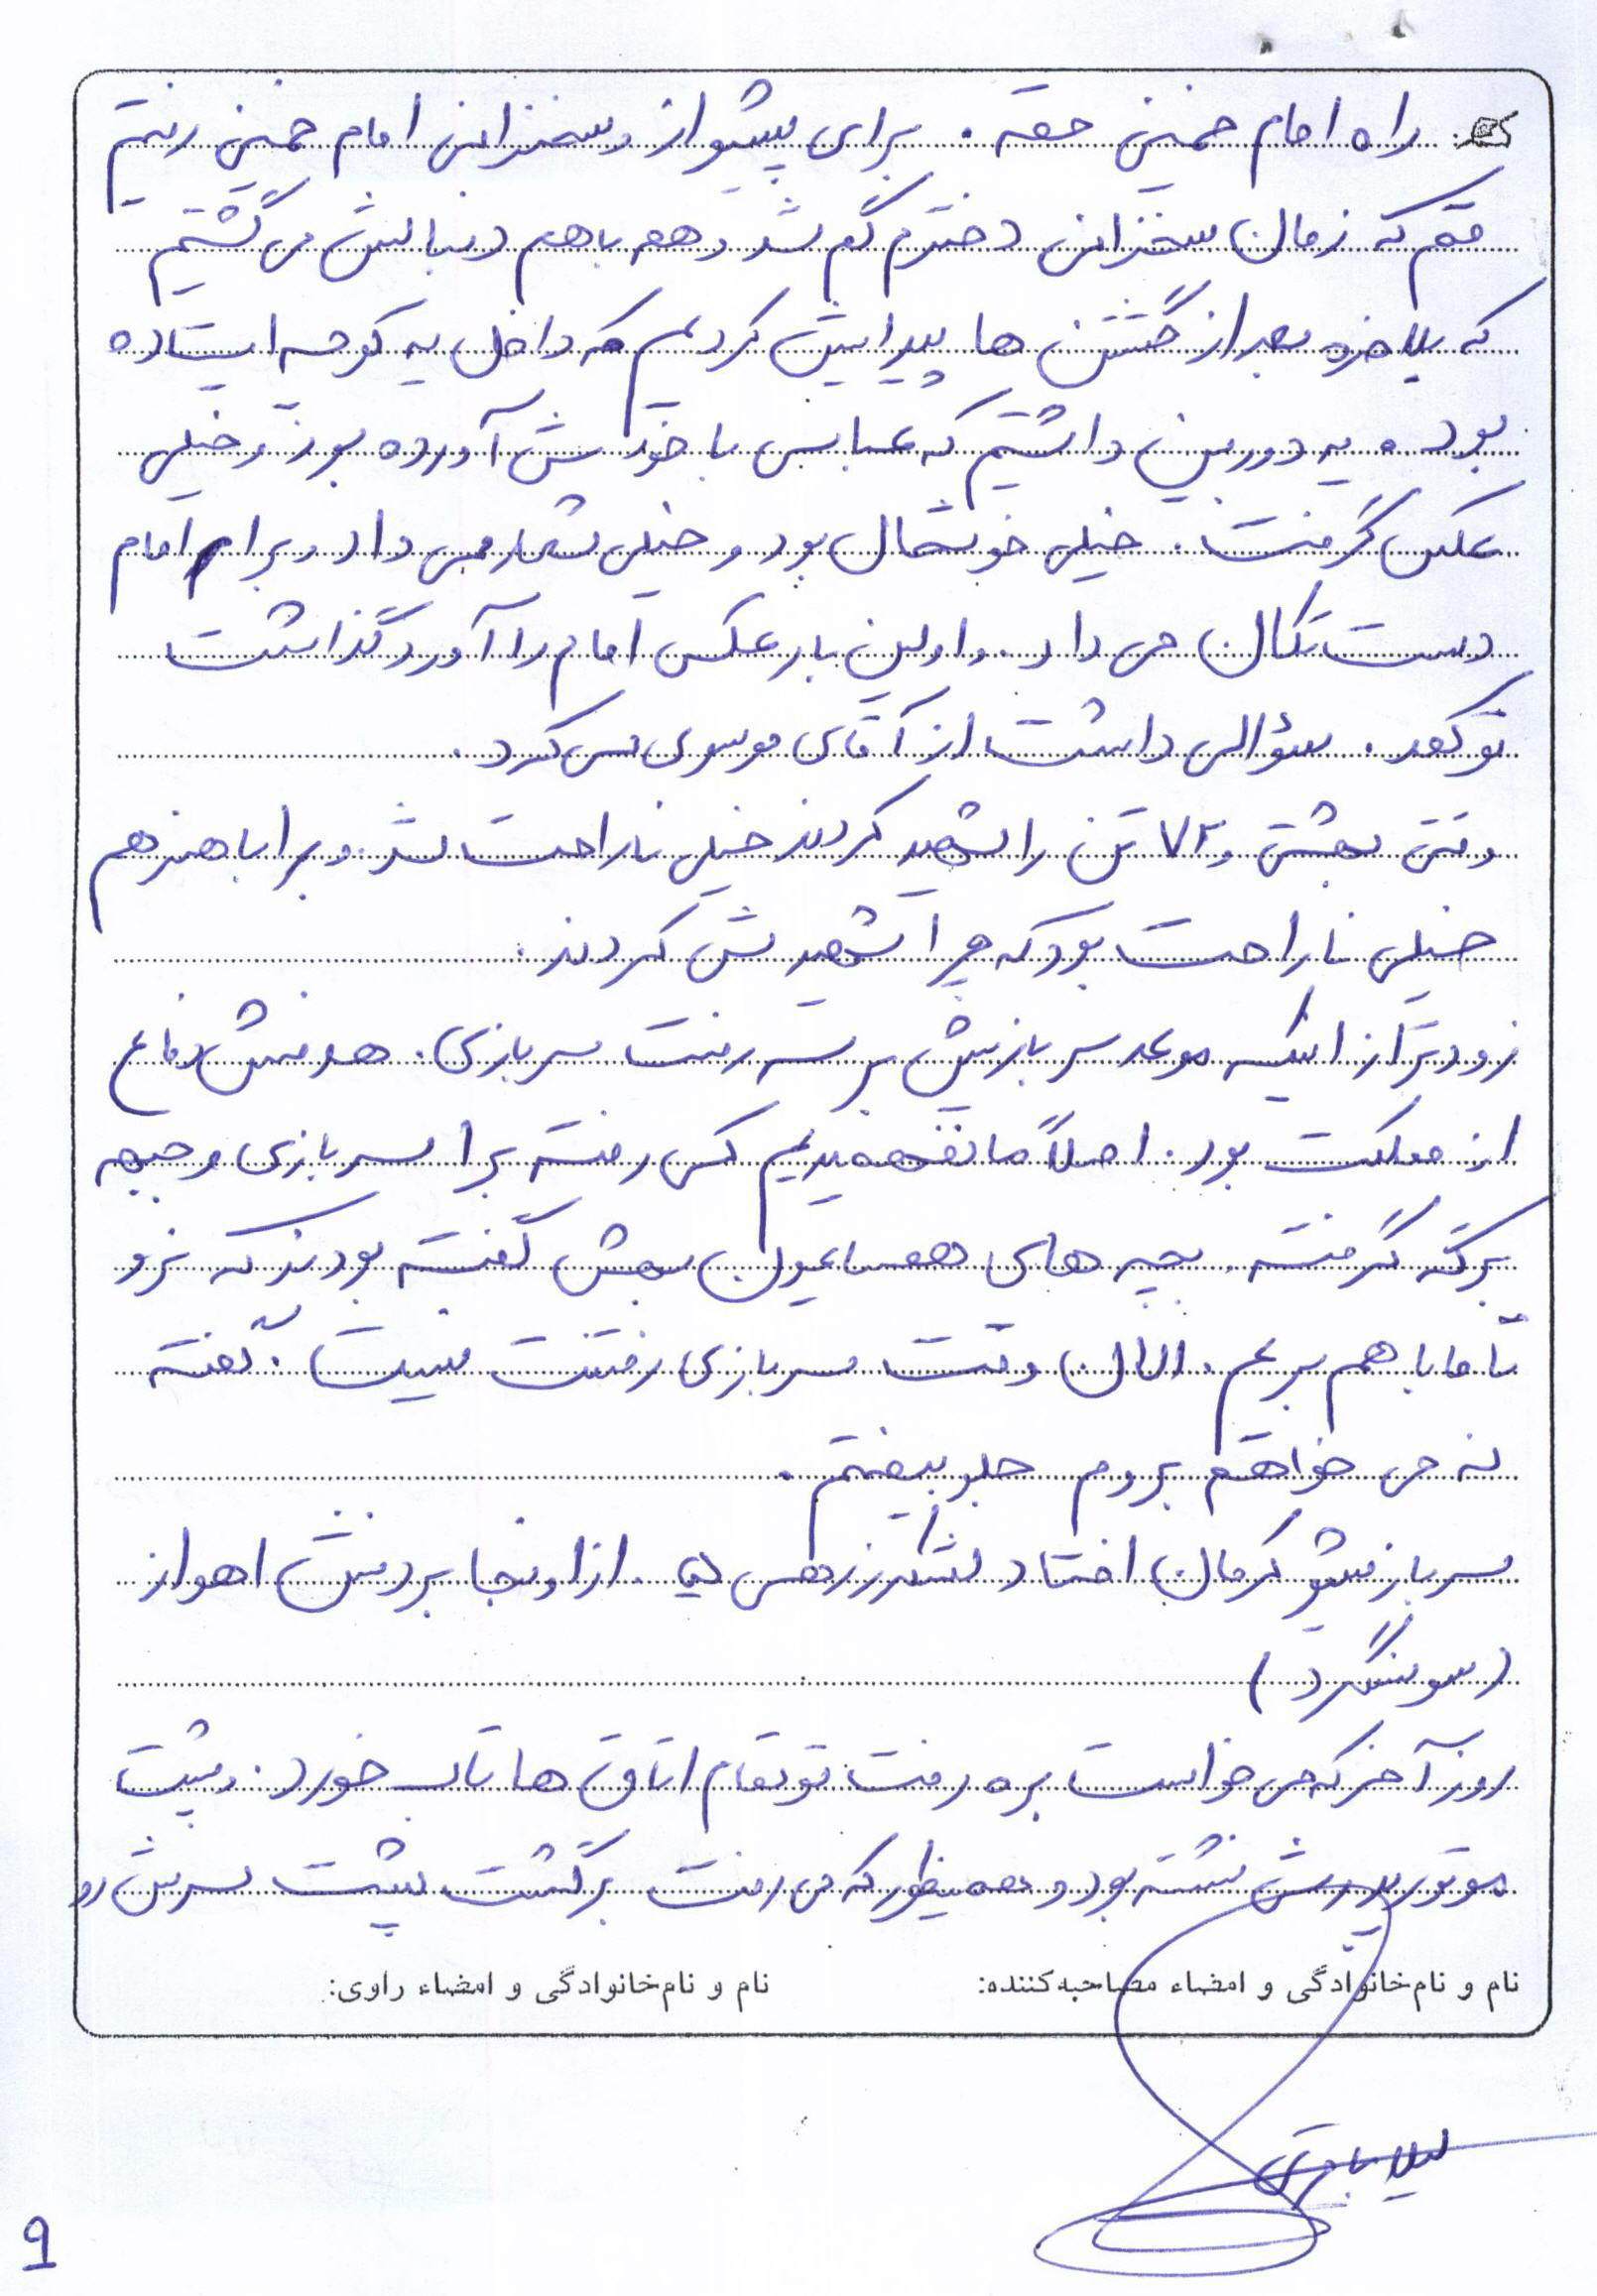 راه امام خمینی حقه . برای پیشواز و سخنرانی امام خمینی رفتیم
قم که زمان سخنرانی دخترم گم شد و هم باهم دنبالش می گشتیم
که بلاخره بعد از گشتن ها پیدایش کردیم که داخل یه کوچه ایستاده
بود . یه دوربین داشتیم که عباس با خودش آورده بود و خیلی
عکس گرفت . خیلی خوشحال بود و خیلی شعار می داد و برای امام
دست تکان می داد . و اولین بار عکس امام را آورد گذاشت
تو کمد . سؤالی داشت از آقای موسوی می کرد .
وقتی بهشتی و ۷۲ تن را شهید کردند خیلی ناراحت شد . و برا باهنر هم
خیلی ناراحت بود که چرا شهیدش کردند .
زودتر از اینکه موعد سربازیش برسه رفت سربازی . هدفش دفاع
از مملکت بود . اصلاً ما نفهمیدیم کی رفته برا سربازی و جبهه
برگه گرفته . بچه های همسایمون بهش گفته بودند که نرو
تا ما با هم بریم . الان وقت سربازی رفتنت نیست . گفته
نه می خواهم بروم جلو بیفتم .
سربازیشو کرمان افتاد لشکر زرهی . از اونجا بردنش اهواز
( سوسنگرد )
روز آخر که می خواست بره رفت تو تمام اتاق ها تاب خورد . و پشت
موتور پدرش نشسته بود و همینطور که می رفت برگشت پشت سرش رو
نام و نام‌خانوادگی و امضاء مصاحبه‌کننده: نام و نام‌خانوادگی و امضاء راوی:
لیلا باقری
۹